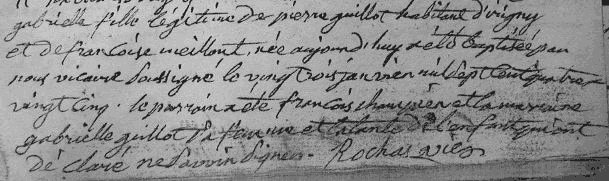 gabrielle fille legitime de pierre guillot habitant d'irigny
et de francoise meillant, née aujourd'huy a été baptisée par
nous vicaire soussigné le vingt trois janvier mil sept cent quatre
vingt cinq. le parrain a été francois champier et la marraine
gabrielle guillot sa femme et la tante de l'enfant qui ont
déclaré ne savoir signer. Rochas vic